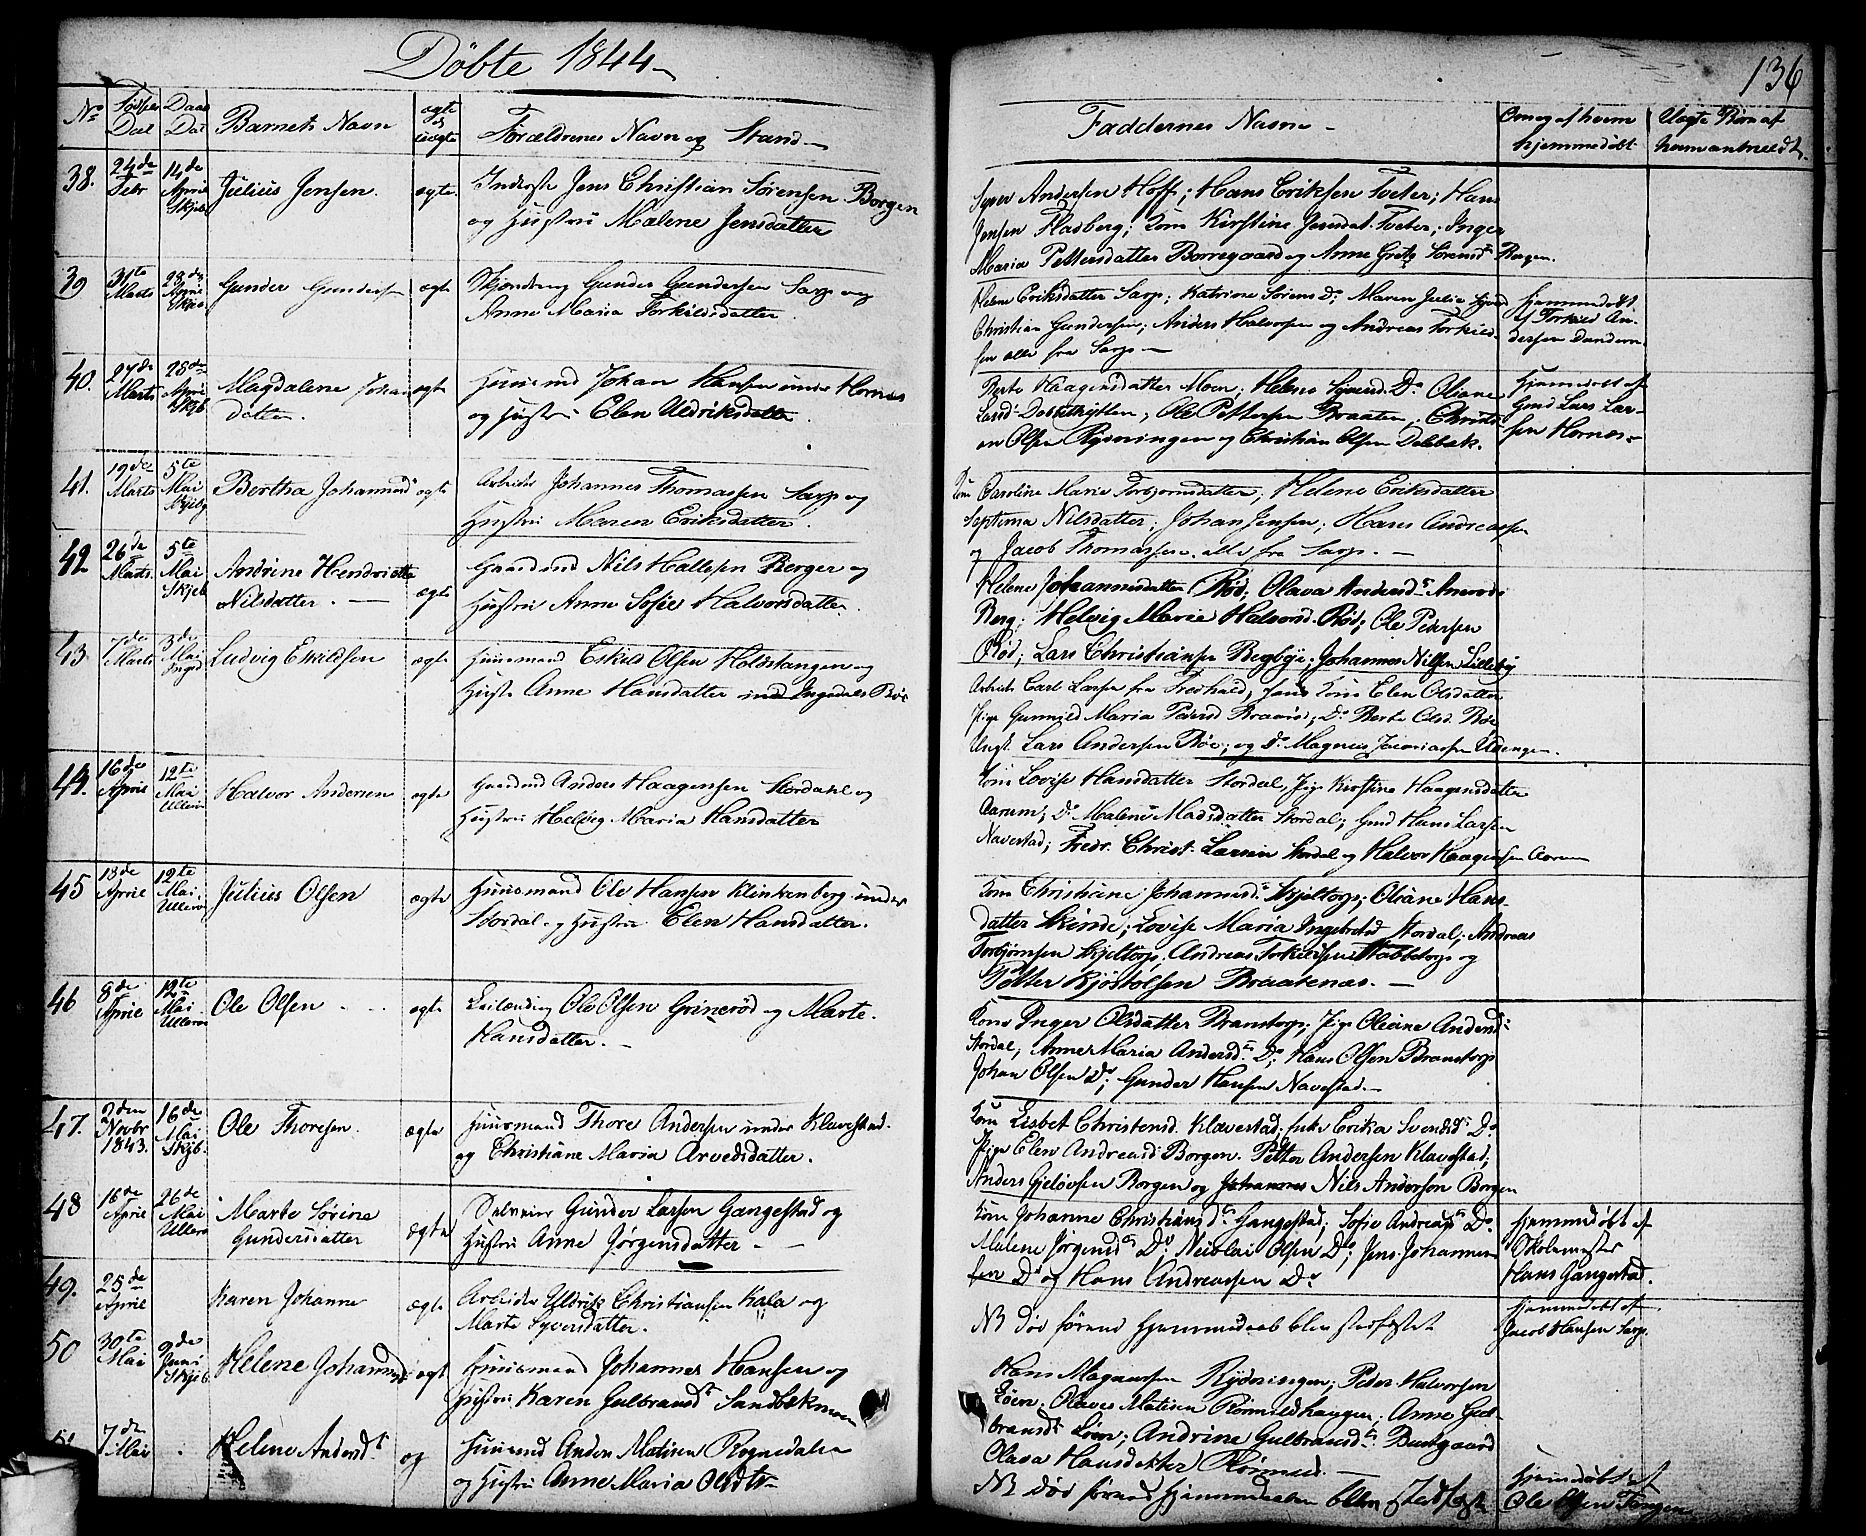 Döbte 1844
136
No
Dal
Daab
Dal
Barnets Navn
ægte
uægte
Forældrenes Navn og Stand
Faddernes Navn
hjemmedöbt
38. 24de Febr 14de April Skjeb Julius Jensen ægte Jens Christian Sörensen Borgen
og Hustru Malene Jensdatter
Andersen Hoff; Hans Eriksen Tveter; Hans
Jensen Kone Kirstine Tveter; Inger
Maria Pettersdatter Borregaard og Anne Grete Borgen.
39 31te Marts 28de April Gunder Gundersen ægte Gunder Gundersen Sarp og
Anne Maria Torkildsdatter.
Helene Eriksdatter Sarp; Katrine Sörens Do; Maren Julie
Christian Gundersen; Anders Halvorsen og Andreas Torkild-
sen alle fra Sarp
Hjemmedöbt
af Torkild An-
dersen
40. 27de Marts 28de April Skjb Magdalene Johans
datter. ægte Huusmd Johan Hansen under Hornæs
og Hustru Elen Uldriksdatter.
Berte Haagensdatter Moen; Helene Do Oliane
Ole Pettersen Braaten, Christi-
an Olsen Rydningen og Christian Olsen Dalebak.
Hjemmedöbt af
Gmd Lars Lar-
sen Hornæs
41. 19de Marts 5te Mai Bertha Johannesd ægte Arbeider Johannes Thomassen Sarp og
Hustru Maren Eriksdatter.
Kone Caroline Marie Torbjornsdatter; Helene Eriksdatter
Nilsdatter; Johan Jensen; Hans Andreassen
og Jacob Thomassen, alle fra Sarp.
42 26de Marts 5te Mai Skjeb Andrine Hendriette
Nilsdatter. ægte Gaardmd Nils Hallesen Berger og
Hustru Anne Sofie Halvorsdatter.
Helene Johannesdatter Röd; Olava Andersd
Berg; Helvig Marie Halvorsd. Röd; Ole Pedersen
Röd; Lars Christiansen Begbye; Johannes Nilsen Lilleby
43. 7de Marts 3de Mai Ludvig Eskildsen ægte Huusmand Eskild Olsen Holdstangen og
Anne Hansdatter Ingedals Böe
Arbeids Carl Larsen fra Fredhald; Kone Elen Olsdatter
Pige Gunnild Maria Braanö; Do Berte Olsd. Böe
Ungk. Lars Andersen Böe; og Do Magnus
44. 16de April 12te Mai Ullerö Halvor Andersen ægte Gaardmd Anders Haagensen Stordahl og
Hustru Helvig Maria Hansdatter
Kone Lovise Hansdatter Stordal, Pige Kirstine Haagensdatter
Aarum; Do Malene Madsdatter Stordal; Gmd Hans Larsen
Navestad; Fredr. Christ. Larsen Stordal og Halvor Haagensen Aarum
45 18de April 12te Mai Ullerö Julius Olsen ægte Huusmand Ole Hansen Klinkenberg under
Stordal og Hustru Elen Hansdatter.
Kone Christiane Johannesd. Skjeltorp; Oliane Hans-
datter Lovise Maria Ingebretsd Stordal; Andreas
Torbjörnsen Skjeltorp; Andreas Torkildsen Stabbetorp og
Petter Kjöstolsen Braatenæs.
46 8de April 12te Mai Ullerö Ole Olsen ægte Leilænding Ole Olsen Grineröd og Marte
Hansdatter.
Kone Inger Olsdatter Branstorp; Pige Oliane Andersd
Stordal; Anne Maria Andersd. Do; Hans Olsen Branstorp
Johan Olsen Do; Gunder Hansen Navestad.
47. 2den Novbr 1843. 16de Mai Skjb. Ole Thoresen ægte Huusmand Thore Andersen under Klavestad.
og Christiane Maria Arvedsdatter.
Kone Lisbet Christensd. Klavestad; Enke Erika Svendsd Do
Pige Elen Andreasd. Borgen. Petter Andersen Klavestad;
Anders Gjelövsen Borgen og Johannes Nils Anderson Borgen
48 16de April 26de Mai Ullerö Marte Sörine
Gundersdatter ægte Gunder Larsen Gangestad og
Hustru Anne Jörgensdatter
Kone Johanne Christiansd. Gangestad; Sofie Andreasd Do
Malene Jörgensd Do; Nicolai Olsen Do; Jens Johannes-
sen Do og Hans Andreassen Do
Hjemmedöbt af
Skolemester
Hans Gangestad.
49. 25de April Karen Johanne ægte Arbeider Uldrik Christiansen Kala og
Marte Syversdatter.
NB död förend Hjemmedaab blev stadfæstet
Hjemmedöbt af
Jacob Hansen Sarp.
50 30te Mai 9de Juni Skjeb Helene Johannesd ægt Huusmand Johannes Hansen og
Hustru Karen Gulbransd Sandbækmoen
Hans Magnussen Rydningen; Peder Halvorsen
Löen, Olaves Matisen Romildhaugen; Anne Gul-
bransd Löen; Andrine Gulbransd. Buegaard
Olava Hansdatter
7de Mai Helene Andersd. og Huusmd Anders Matisen Rognedalen
og Hustru Anne Maria Olsdtr
NB död förend Hjemmedaaben blev stadfæst
Hjemmedöbt af
Ole Olsen Tangen